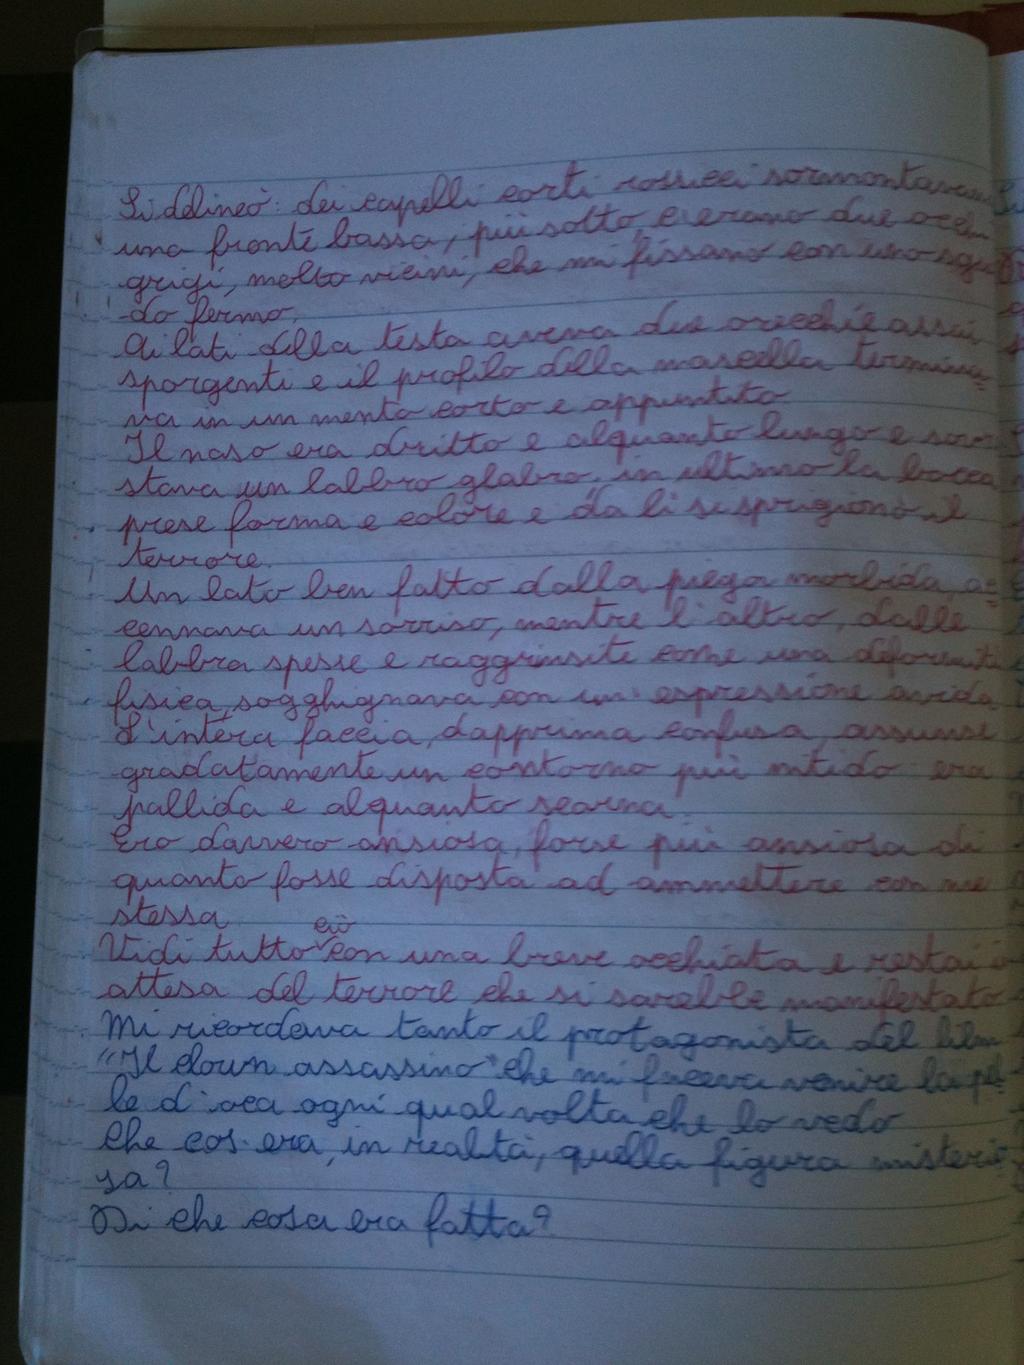 Si delineò: dei capelli corti rossicci sormontavano
una fronte bassa, più sotto, c'erano due occhi
grigi, molto vicini, che mi fissano con uno sguar
do fermo.
Ai lati della testa aveva due orecchie assai
sporgenti e il profilo della mascella termina-
va in un mento corto e appuntito
Il naso era dritto e alquanto lungo e sovra
stava un labbro glabro. in ultimo la bocca
prese forma e colore e da li si sprigionò il
terrore.
Un lato ben fatto dalla piega morbida, ac-
cennava un sorriso, mentre l'altro, dalle
labbra spesse e raggrinsite come una deformità
fisica, sogghignava con un'espressione avida.
L'intera faccia, dapprima confusa, assunse
gradatamente un contorno più nitido: era
pallida e alquanto scarna.
Ero davvero ansiosa, forse più ansiosa di
quanto fosse disposta ad ammettere con me
stessa
Vidi tutto ciò con una breve occhiata e restai in
attesa del terrore che si sarebbe manifestato
Mi ricordava tanto il protagonista del film
"Il clown assassino" che mi faceva venire la pel-
le d'oca ogni qual volta che lo vedo
Che cos'era, in realtà, quella figura misterio
sa?
Di che cosa era fatta?